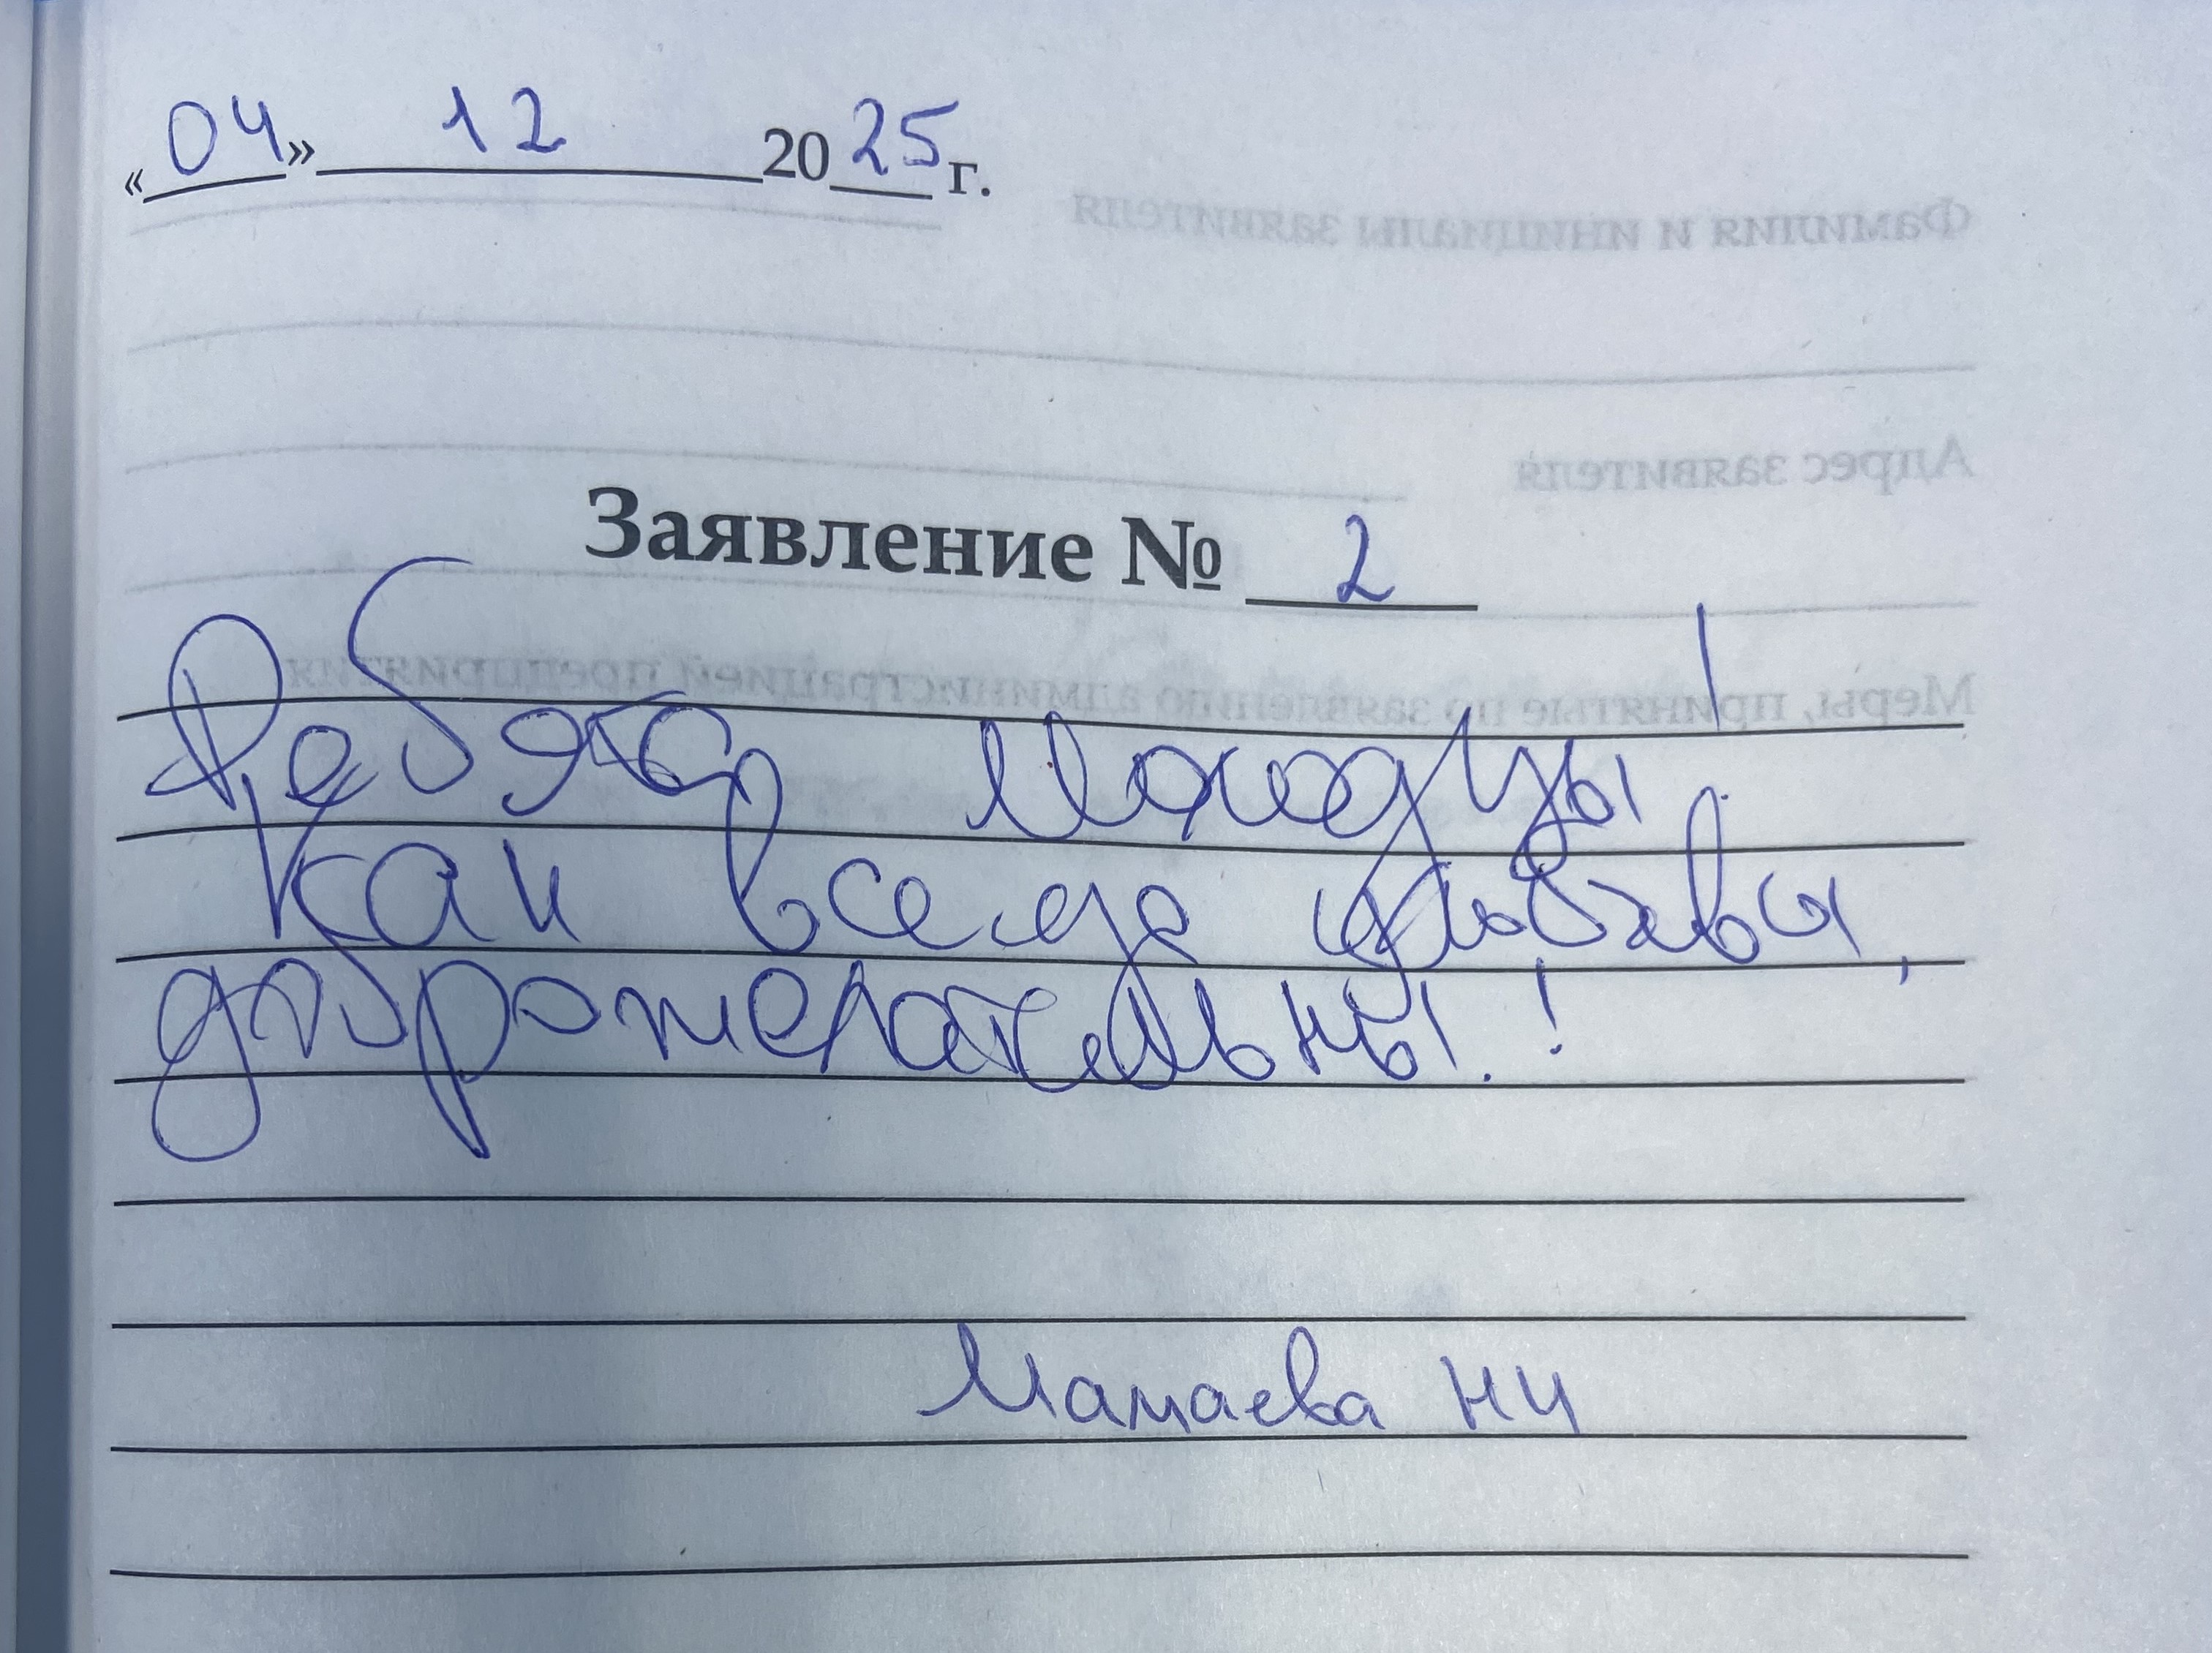 «04» 12 2025 г.
Заявление № 2
Ребята молодцы!
Как всегда
доброжелательны!
Мамаева НИ